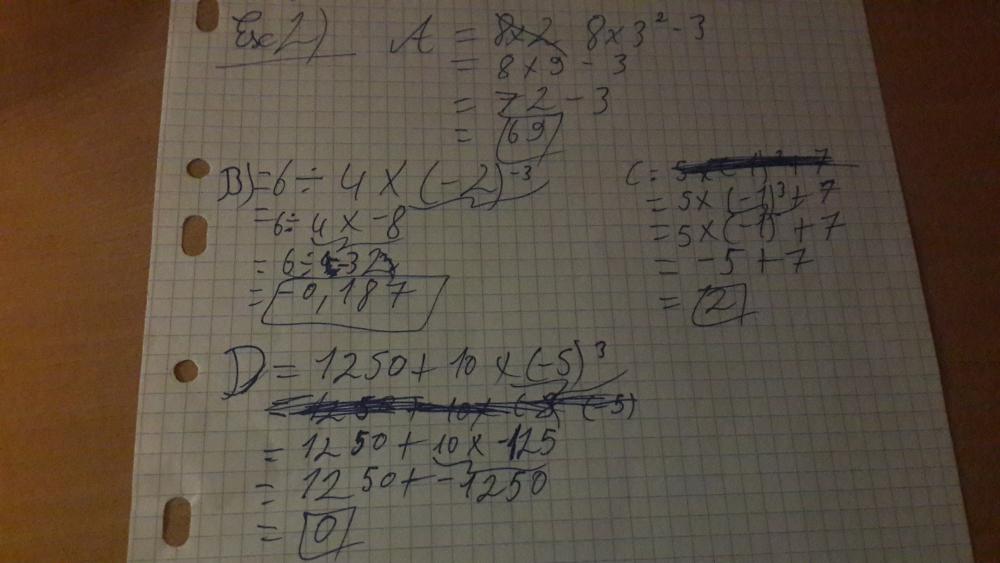 Exc 2) A = 8x2 8x3² -3
= 8x9 - 3
= 72 - 3
= 69
B) = 6 ÷ 4 X (-2)⁻³
= 6 ÷ 4 x -8
= 6 ÷ -32
= -0,187
C = 5 x (-1)³ + 7
= 5x (-1)³ + 7
= 5 x (-1) + 7
= -5 + 7
= 2
D = 1250 + 10 x (-5)³
= 1250 + 10x (-5)
= 1250 + 10 x -125
= 1250 + -1250
= 0